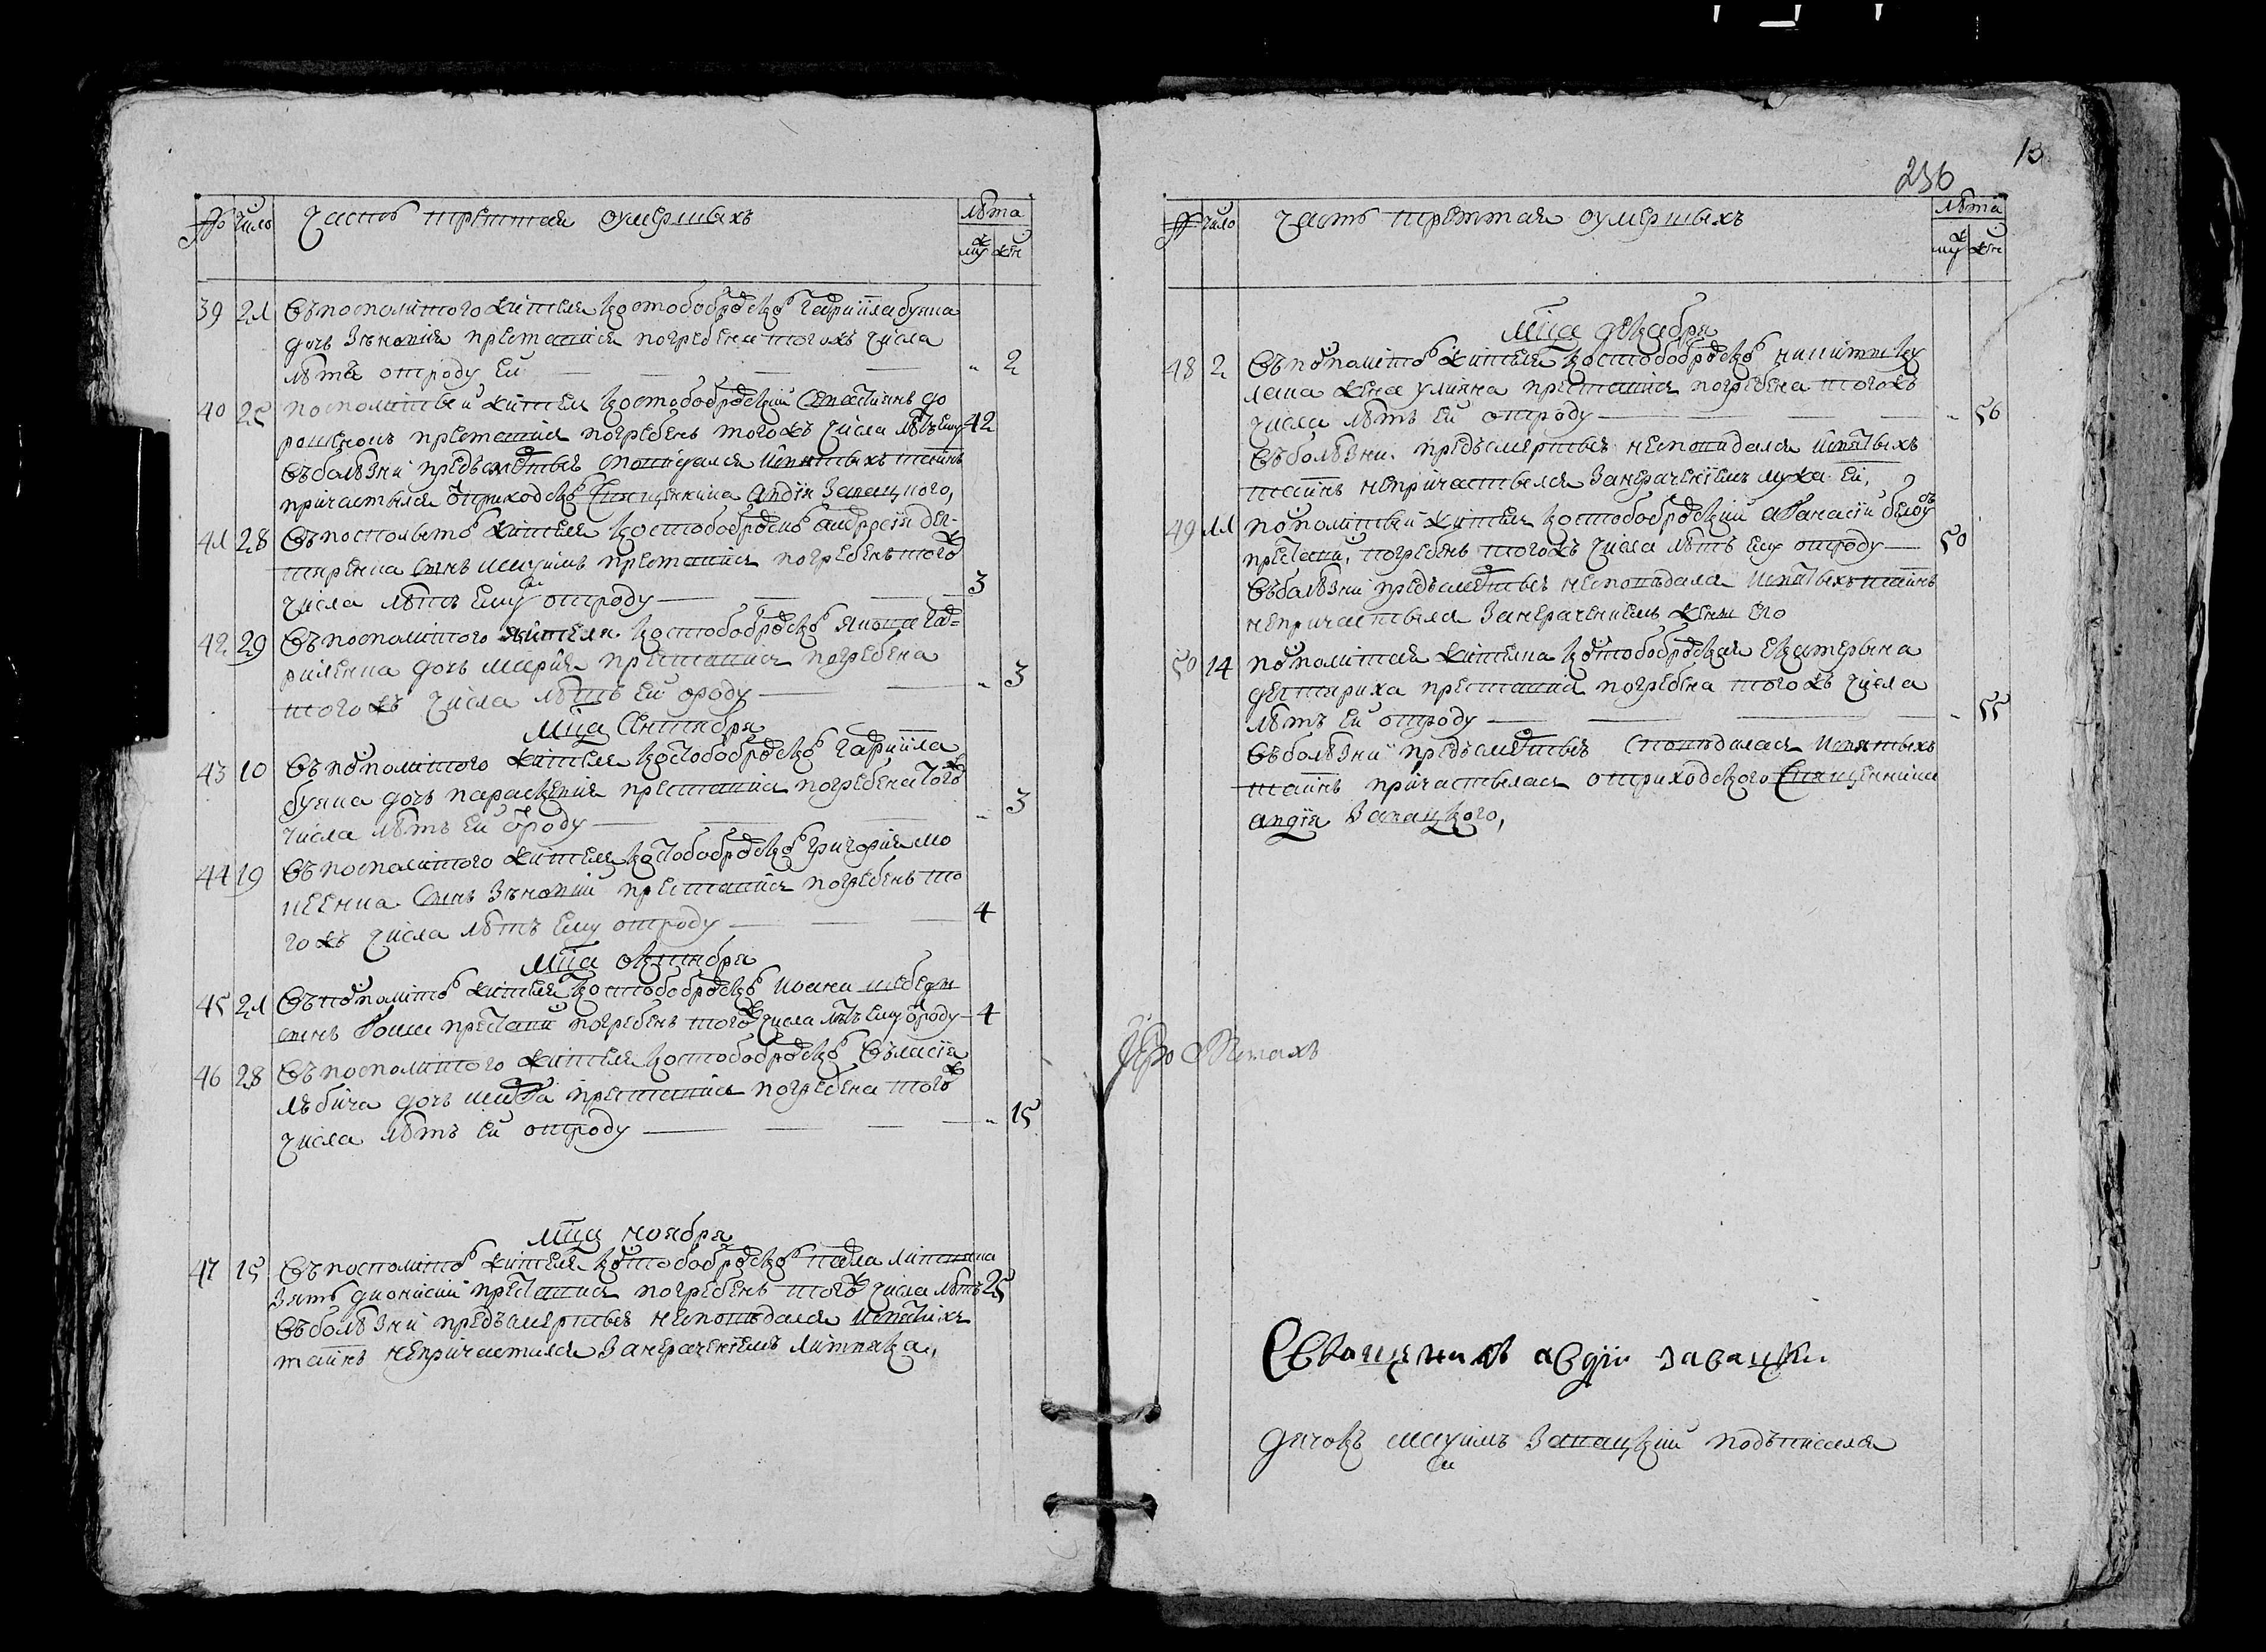 № Число Часть треттая оумершихъ лѣта
муж жен
39 21 Въ посполитого жителя костобобрского Гавриила буяна
дочь Зѣновия преставися погребена тогожъ числа
лѣта отроду ей " 2
40 25 посполитый житель костобобрский Севастиянъ до
рошенокъ преставися погребенъ тогожъ числа лѣтъ ему 42
въ болѣзни предъ смертью сповѣдался и святыхъ таинъ
причастился от приходского священника Авдия Завацкого,
41 28 Въ посполитого жителя костобобрского Андрѣя дег-
тяренка синъ максимъ преставися погребенъ тогожъ
числа лѣтъ ему отроду 3
42 29 Въ посполитого жителя костобобрского якова гав=
риленка дочь мария преставися погребена
тогожъ числа лѣтъ ей отроду " 3
Мца Сентября
43 10 Въ посполитого жителя костобобрского гавриила
буяна дочь параскевия преставися погребена тогожъ
числа лѣтъ ей отроду " 3
44 19 Въ посполитого жителя костобобрского григория мо
сеенка синъ Зѣновий преставися погребенъ то
гожъ числа лѣтъ ему отроду 4
Мца октября
45 21 Въ посполитого жителя костобобрского иоана
синъ фома преставися погребенъ тогожъ числа лѣтъ ему отроду 4
46 28 Въ посполитого жителя костобобрского Власия
лѣбича дочь преставися погребена тогожъ
числа лѣтъ ей отроду " 15
Мца ноября
47 15 Въ посполитого жителя костобобрского павла
зять дионисий преставися погребенъ тогожъ числа лѣтъ 25
въ болѣзни предъ смертью несповѣдался и святихъ
таинъ непричастился за нерачениемъ
13
236
№ Число Часть треттая оумершихъ лѣта
муж жен
Мца декабря
48 2 Въ посполитого жителя костобобрского
жена улияна преставися погребена тогожъ
числа лѣтъ ей отроду " 56
въ болѣзни предъ смертью несповѣдалася и святыхъ
таинъ непричастылася за нерачениемъ мужа ей,
49 11 посполитый житель костобобрский афанасий белоу
преставися, погребенъ тогожъ числа лѣтъ ему отроду 50
въ болѣзни предъ смертью несповѣдался и святыхъ таинъ
непричастылся за нерачениемъ жени его
50 14 посполитая жителка костобобрская екатерына
дегтяриха преставися погребена тогожъ числа
лѣтъ ей отроду " 55
въ болѣзни предъ смертью сповѣдалася и святыхъ
таинъ причастылася от приходского священника
авдия Завацкого,
Священникъ авдiй завацки
дячокъ максимъ Завацкий подъписался